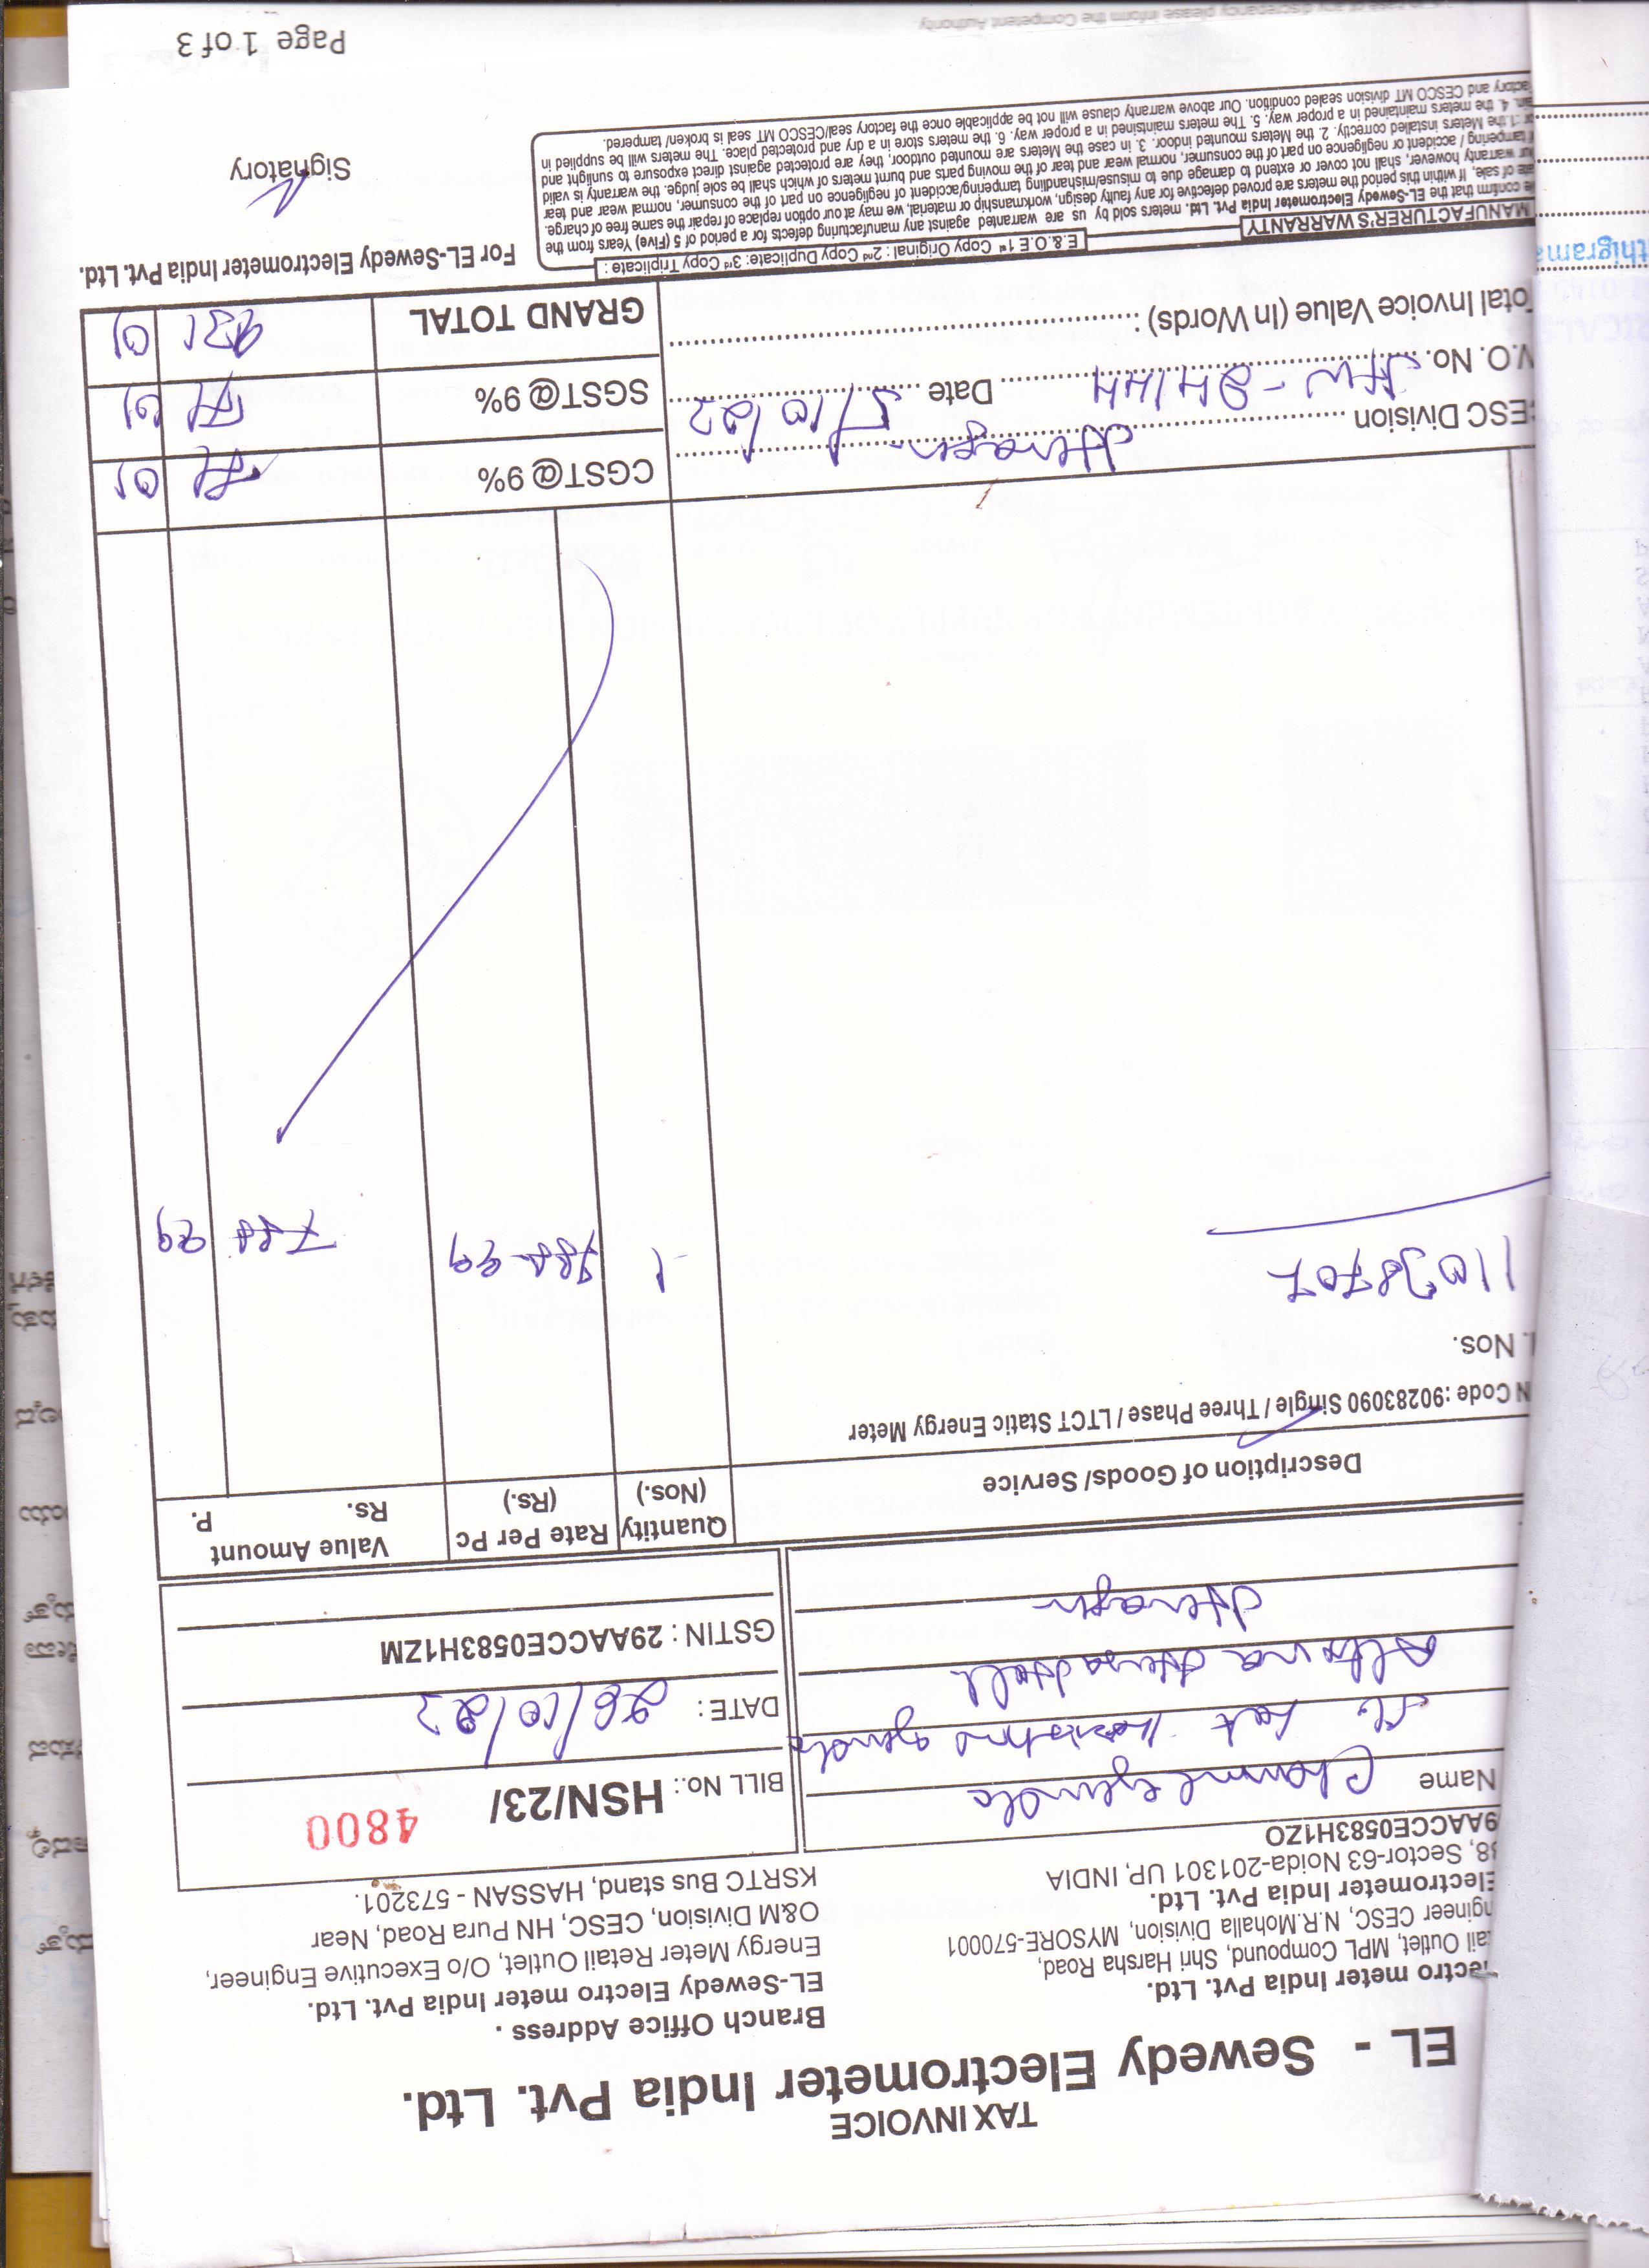 TAX INVOICE
EL - Sewedy Electrometer India Pvt. Ltd.
ectro meter India Pvt. Ltd.
ail Outlet, MPL Compound, Shri Harsha Road,
ngineer CESC, N.R.Mohalla Division, MYSORE-570001
Electrometer India Pvt. Ltd.
38, Sector-63 Noida-201301 UP, INDIA
9AACCE0583H1ZO
Branch Office Address .
EL-Sewedy Electro meter India Pvt. Ltd.
Energy Meter Retail Outlet, O/o Executive Engineer,
O&M Division, CESC, HN Pura Road, Near
KSRTC Bus stand, HASSAN - 573201.
Name
BILL No.: HSN/23/ 4800
DATE : 26/10/22
GSTIN : 29AACCE0583H1ZM
Description of Goods/ Service
Quantity (Nos.)
Rate Per Pc (Rs.)
Value Amount
Rs. P.
N Code :90283090 Single / Three Phase / LTCT Static Energy Meter
. Nos.
11038707
1
788-99
788 99
CESC Division
W.O. No. Date 5/10/22
Total Invoice Value (In Words) :
CGST@ 9% 71 01
SGST@ 9% 71 01
GRAND TOTAL 931 01
E.&.O.E 1st Copy Original : 2nd Copy Duplicate: 3rd Copy Triplicate :
MANUFACTURER'S WARRANTY
e confirm that the EL-Sewedy Electrometer India Pvt. Ltd. meters sold by us are warranted against any manufacturing defects for a period of 5 (Five) Years from the
ate of sale, If within this period the meters are proved defective for any faulty design, workmanship or material, we may at our option replace of repair the same free of charge.
ur warranty however, shall not cover or extend to damage due to misuse/mishandling tampering/accident of negligence on part of the consumer, normal wear and tear
f tampering / accident or negligence on part of the consumer, normal wear and tear of the moving parts and burnt meters of which shall be sole judge. the warranty is valid
or :1.the Meters installed correctly. 2. the Meters mounted indoor. 3. in case the Meters are mounted outdoor, they are protected against direct exposure to sunlight and
ain. 4. the meters maintained in a proper way. 5. The meters maintsined in a proper way. 6. the meters store in a dry and protected place. The meters will be supplied in
actory and CESCO MT division sealed condition. Our above warranty clause will not be applicable once the factory seal/CESCO MT seal is broken/ tampered.
For EL-Sewedy Electrometer India Pvt. Ltd.
Signatory
Page 1 of 3
in case of any discrepancy please inform the Competent Authority.
thigrama